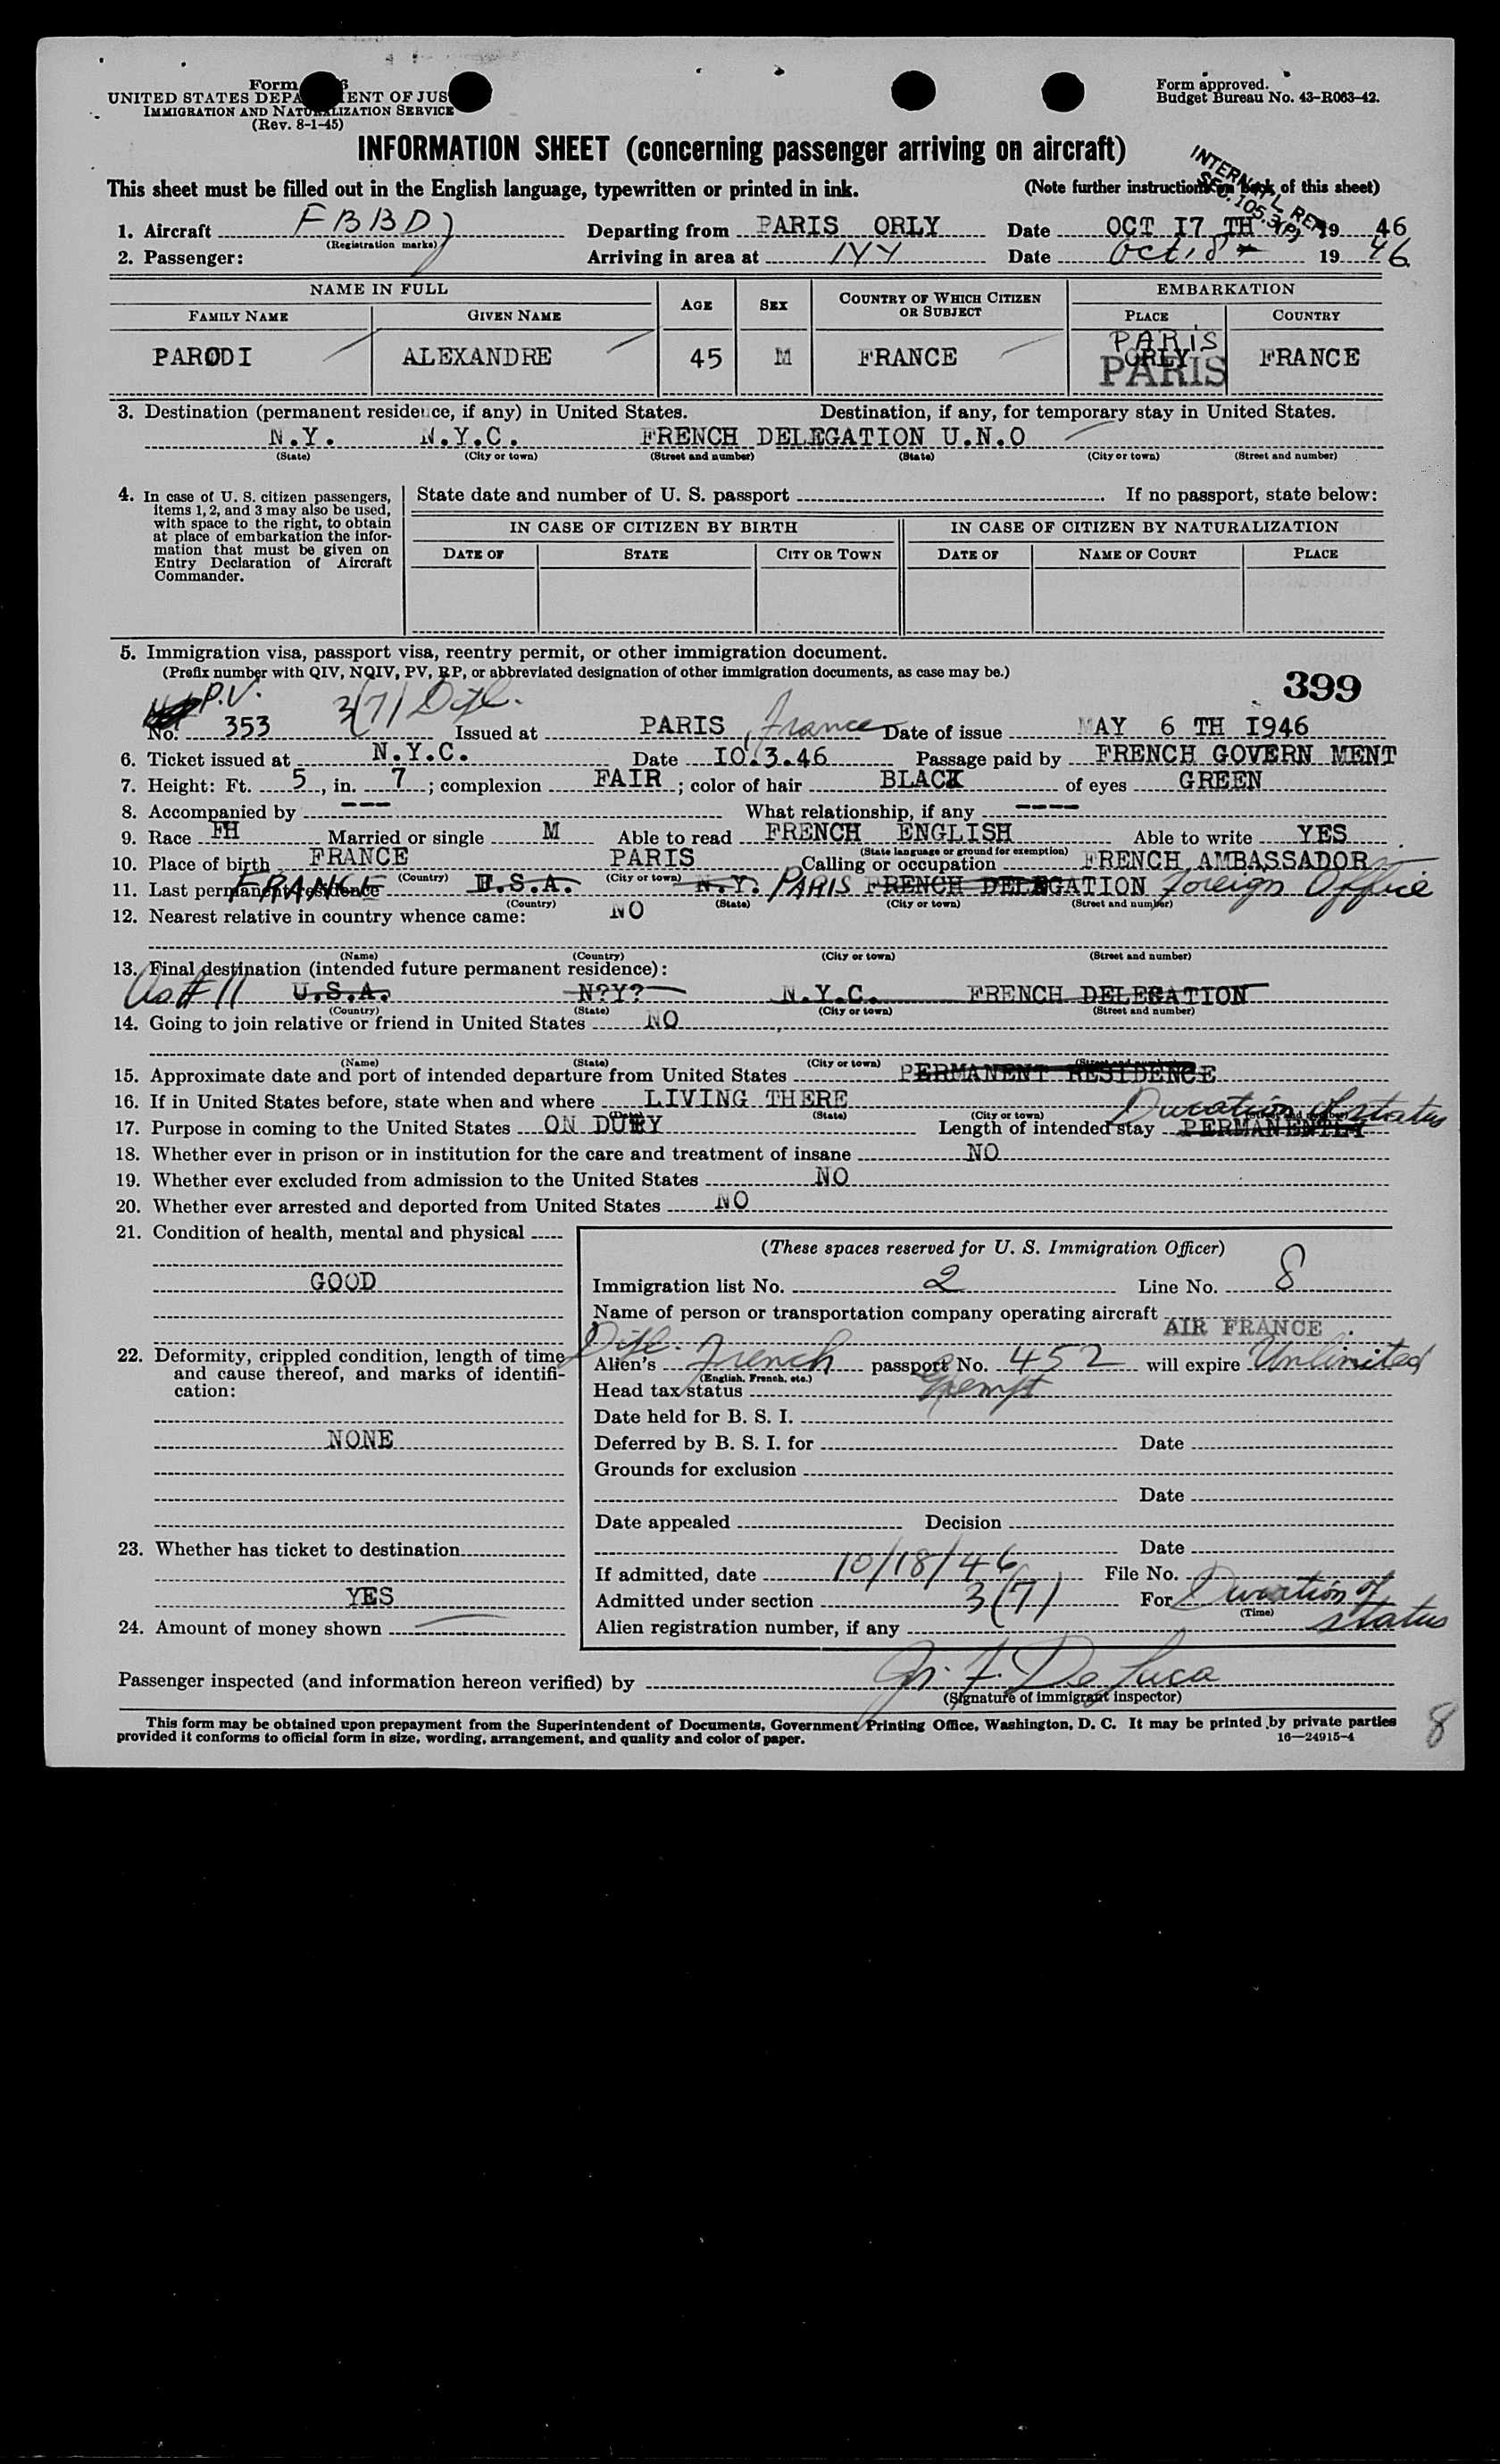 Form
UNITED STATES DEPA ENT OF JUS
IMMIGRATION AND NATURALIZATION SERVICE
(Rev. 8-1-45)
Form approved.
Budget Bureau No. 43-R063-42.
INFORMATION SHEET (concerning passenger arriving on aircraft)
This sheet must be filled out in the English language, typewritten or printed in ink. (Note further instructions on back of this sheet)
INTERN'L REV.
SEC. 105.3(P)
1. Aircraft FBBDJ Departing from PARIS ORLY Date OCT I7 TH 1946
(Registration marks)
2. Passenger: Arriving in area at Date Oct 18 1946
NAME IN FULL AGE SEX COUNTRY OF WHICH CITIZEN OR SUBJECT EMBARKATION
FAMILY NAME GIVEN NAME PLACE COUNTRY
PARIS
PARODI ALEXANDRE 45 M FRANCE ORLY FRANCE
PARIS
3. Destination (permanent residence, if any) in United States. Destination, if any, for temporary stay in United States.
N.Y. N.Y.C. FRENCH DELEGATION U.N.O
(State) (City or town) (Street and number) (State) (City or town) (Street and number)
4. In case of U. S. citizen passengers, items 1, 2, and 3 may also be used, with space to the right, to obtain at place of embarkation the information that must be given on Entry Declaration of Aircraft Commander.
State date and number of U. S. passport If no passport, state below:
IN CASE OF CITIZEN BY BIRTH IN CASE OF CITIZEN BY NATURALIZATION
DATE OF STATE CITY OR TOWN DATE OF NAME OF COURT PLACE
5. Immigration visa, passport visa, reentry permit, or other immigration document.
(Prefix number with QIV, NQIV, PV, RP, or abbreviated designation of other immigration documents, as case may be.)
399
P.V. 3(7) Dipl.
No. 353 Issued at PARIS, France Date of issue MAY 6 TH I946
6. Ticket issued at N.Y.C. Date IO.3.46 Passage paid by FRENCH GOVERN MENT
7. Height: Ft. 5, in. 7; complexion FAIR; color of hair BLACK of eyes GREEN
8. Accompanied by --- What relationship, if any ----
9. Race FH Married or single M Able to read FRENCH ENGLISH Able to write YES
(State language or ground for exemption)
10. Place of birth FRANCE PARIS Calling or occupation FRENCH AMBASSADOR
(Country) (City or town)
11. Last permanent residence FRANCE U.S.A. N.Y. PARIS FRENCH DELEGATION Foreign Office
(Country) (State) (City or town) (Street and number)
12. Nearest relative in country whence came: NO
(Name) (Country) (City or town) (Street and number)
13. Final destination (intended future permanent residence):
As # 11 U.S.A. N?Y? N.Y.C. FRENCH DELEGATION
(Country) (State) (City or town) (Street and number)
14. Going to join relative or friend in United States NO
(Name) (State) (City or town) (Street and number)
15. Approximate date and port of intended departure from United States PERMANENT RESIDENCE
16. If in United States before, state when and where LIVING THERE
(Date) (State) (City or town) (Street and number)
Duration of status
17. Purpose in coming to the United States ON DUTY Length of intended stay PERMANENTLY
18. Whether ever in prison or in institution for the care and treatment of insane NO
19. Whether ever excluded from admission to the United States NO
20. Whether ever arrested and deported from United States NO
21. Condition of health, mental and physical
GOOD
22. Deformity, crippled condition, length of time and cause thereof, and marks of identification:
NONE
23. Whether has ticket to destination
YES
24. Amount of money shown
(These spaces reserved for U. S. Immigration Officer)
Immigration list No. 2 Line No. 8
Name of person or transportation company operating aircraft AIR FRANCE
Dipl.
Alien's French passport No. 452 will expire Unlimited
(English, French, etc.)
Head tax status Exempt
Date held for B. S. I.
Deferred by B. S. I. for Date
Grounds for exclusion
Date
Date appealed Decision
Date
If admitted, date 10/18/46 File No.
Admitted under section 3(7) For Duration of status
(Time)
Alien registration number, if any
Passenger inspected (and information hereon verified) by F. De Luca
(Signature of immigrant inspector)
This form may be obtained upon prepayment from the Superintendent of Documents, Government Printing Office, Washington, D. C. It may be printed by private parties
provided it conforms to official form in size, wording, arrangement, and quality and color of paper. 16—24915-4
8